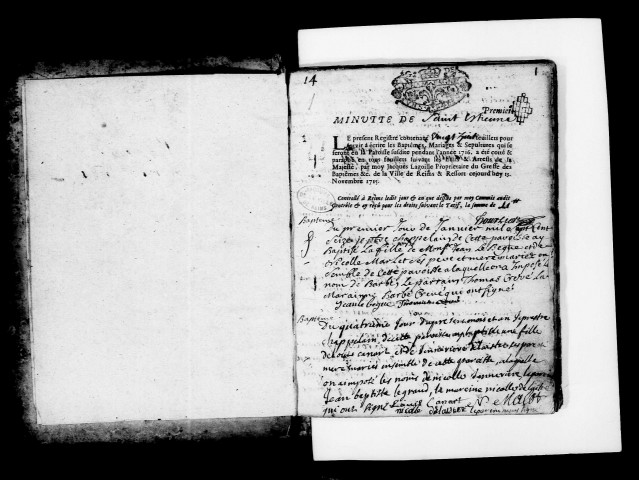 14
1
Premier
MINUTTE DE Saint Estienne
LE present Registre contenant vingt huit feuillets pour
servir à écrire les Baptêmes, Mariages & Sepultures qui se
feront en la Paroisse susdite pendant l'année 1716. a été cotté &
paraphé en tous feuillets suivant les Edits & Arrests de sa
Majesté, par moy Jacques Lagoille Proprietaire du Greffe des
Baptêmes &c. de la Ville de Reims & Ressort cejourd'huy 15.
Novembre 1715.
Controllé à Reims ledit jour & an que dessus par moy Commis audit
Controlle & ay reçû pour les droits suivant le Tarif, la somme de
Baptesme
Du premier Jour de Janvier mil sept Cent
Seize je prestre chappelain de Cette paroisse ay
Baptisé La fille de Monsr Jean Le Begue et de
Nicolle Marlet ses pere et mere mariez en
semble de Cette paroisse a laquelle on a Imposé le
nom de Barbe, Le parrain Thomas Crevé La
Maraine Barbe Crevé qui ont signé
Jean le begue Thomas Crevé
Baptesme
Du quatrieme Jour du present mois et an Je prestre
chappelain de cette paroisse ay baptisé une fille
de louis canart et de
mere mariés ensemble de cette paroisse, a laquelle
on a imposé les noms de nicolle le parain
Jean baptiste le grand, la mareine nicolle
qui ont signé Louis Canart
nicole